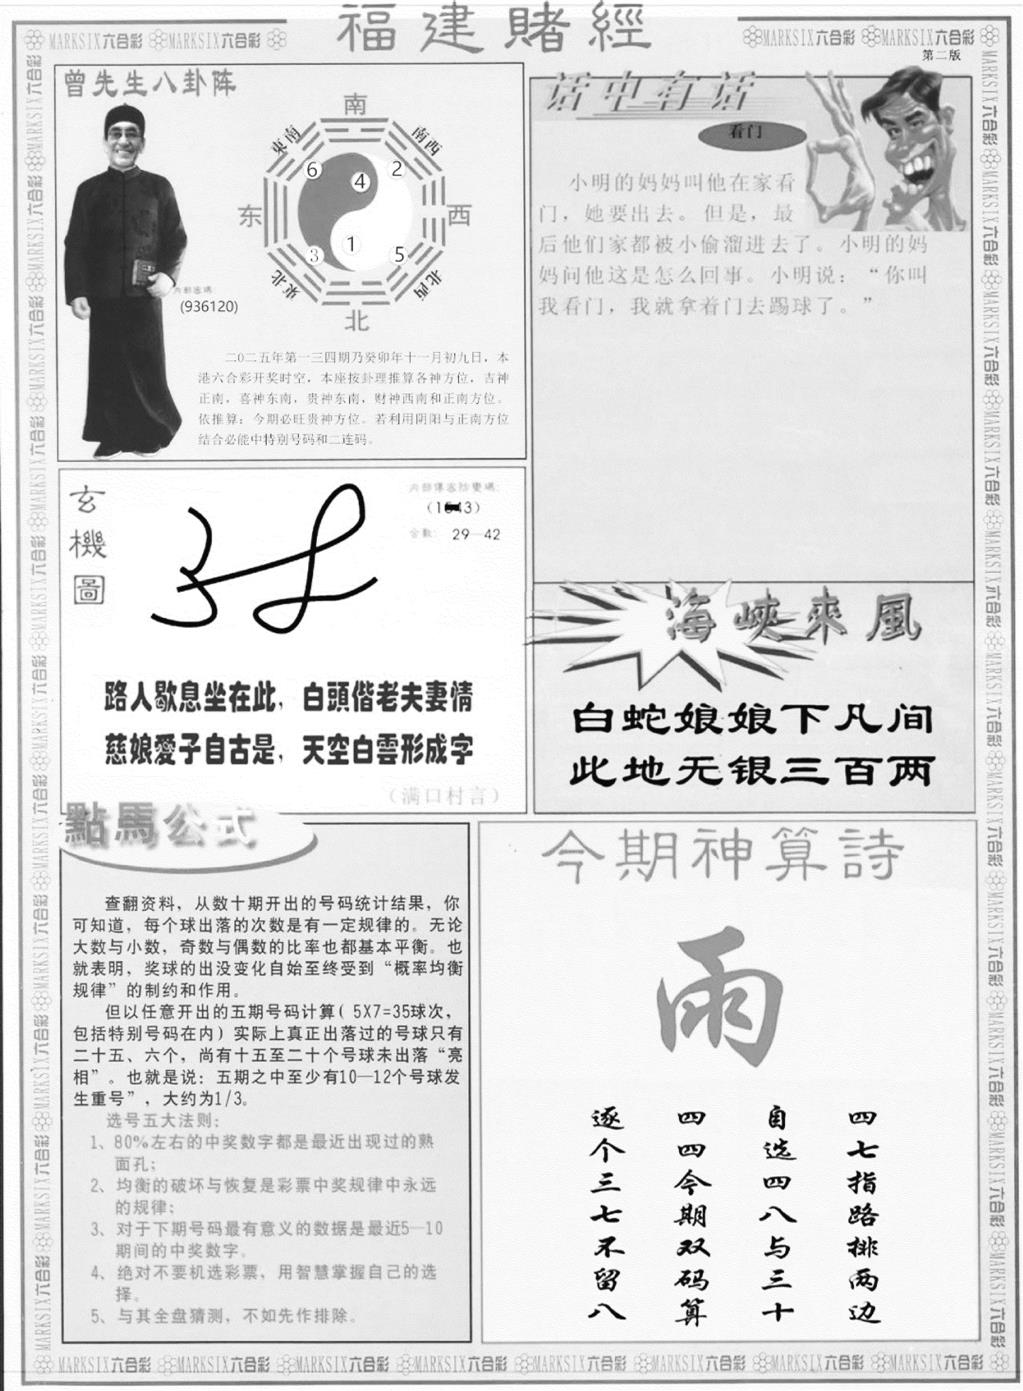 福建賭經
MARKSIX六合彩 MARKSIX六合彩
MARKSIX六合彩 MARKSIX六合彩
第二版
曾先生八卦阵
南
東南
南西
6
4
2
东
西
3
1
5
東北
北西
北
内部密码:
(936120)
二〇二五年第一三四期乃癸卯年十一月初九日，本
港六合彩开奖时空，本座按卦理推算各神方位，吉神
正南，喜神东南，贵神东南，财神西南和正南方位。
依推算：今期必旺贵神方位。若利用阴阳与正南方位
结合必能中特别号码和二连码。
话中有话
看门
小明的妈妈叫他在家看
门，她要出去。但是，最
后他们家都被小偷溜进去了。小明的妈
妈问他这是怎么回事。小明说：“你叫
我看门，我就拿着门去踢球了。”
玄
機
圖
29—42
路人歇息坐在此，白頭偕老夫妻情
慈娘愛子自古是，天空白雲形成字
（满口村言）
海峽來風
白蛇娘娘下凡间
此地无银三百两
點馬公式
查翻资料，从数十期开出的号码统计结果，你
可知道，每个球出落的次数是有一定规律的。无论
大数与小数，奇数与偶数的比率也都基本平衡。也
就表明，奖球的出没变化自始至终受到“概率均衡
规律”的制约和作用。
但以任意开出的五期号码计算( 5X7=35球次，
包括特别号码在内）实际上真正出落过的号球只有
二十五、六个，尚有十五至二十个号球未出落“亮
相”。也就是说：五期之中至少有10—12个号球发
生重号”，大约为1/3。
选号五大法则:
1、80%左右的中奖数字都是最近出现过的熟
面孔；
2、均衡的破坏与恢复是彩票中奖规律中永远
的规律；
3、对于下期号码最有意义的数据是最近5—10
期间的中奖数字。
4、绝对不要机选彩票，用智慧掌握自己的选
择。
5、与其全盘猜测，不如先作排除。
今期神算詩
雨
四七指路排两边
自选四八与三十
四四今期双码算
逐个三七不留八
MARKSIX六合彩 MARKSIX六合彩 MARKSIX六合彩 MARKSIX六合彩 MARKSIX六合彩 MARKSIX六合彩 MARKSIX六合彩 MARKSIX六合彩